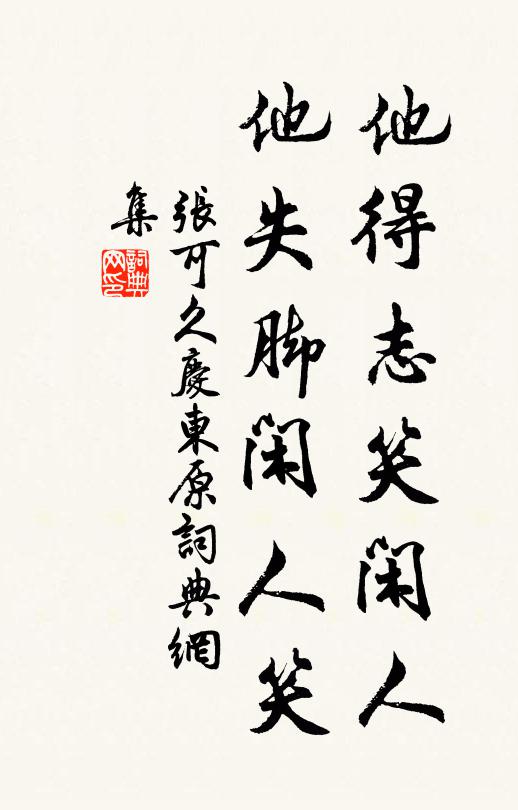 他得志笑閑人
他失脚閑人笑
張可久慶東原詞典網
集
詞典网印